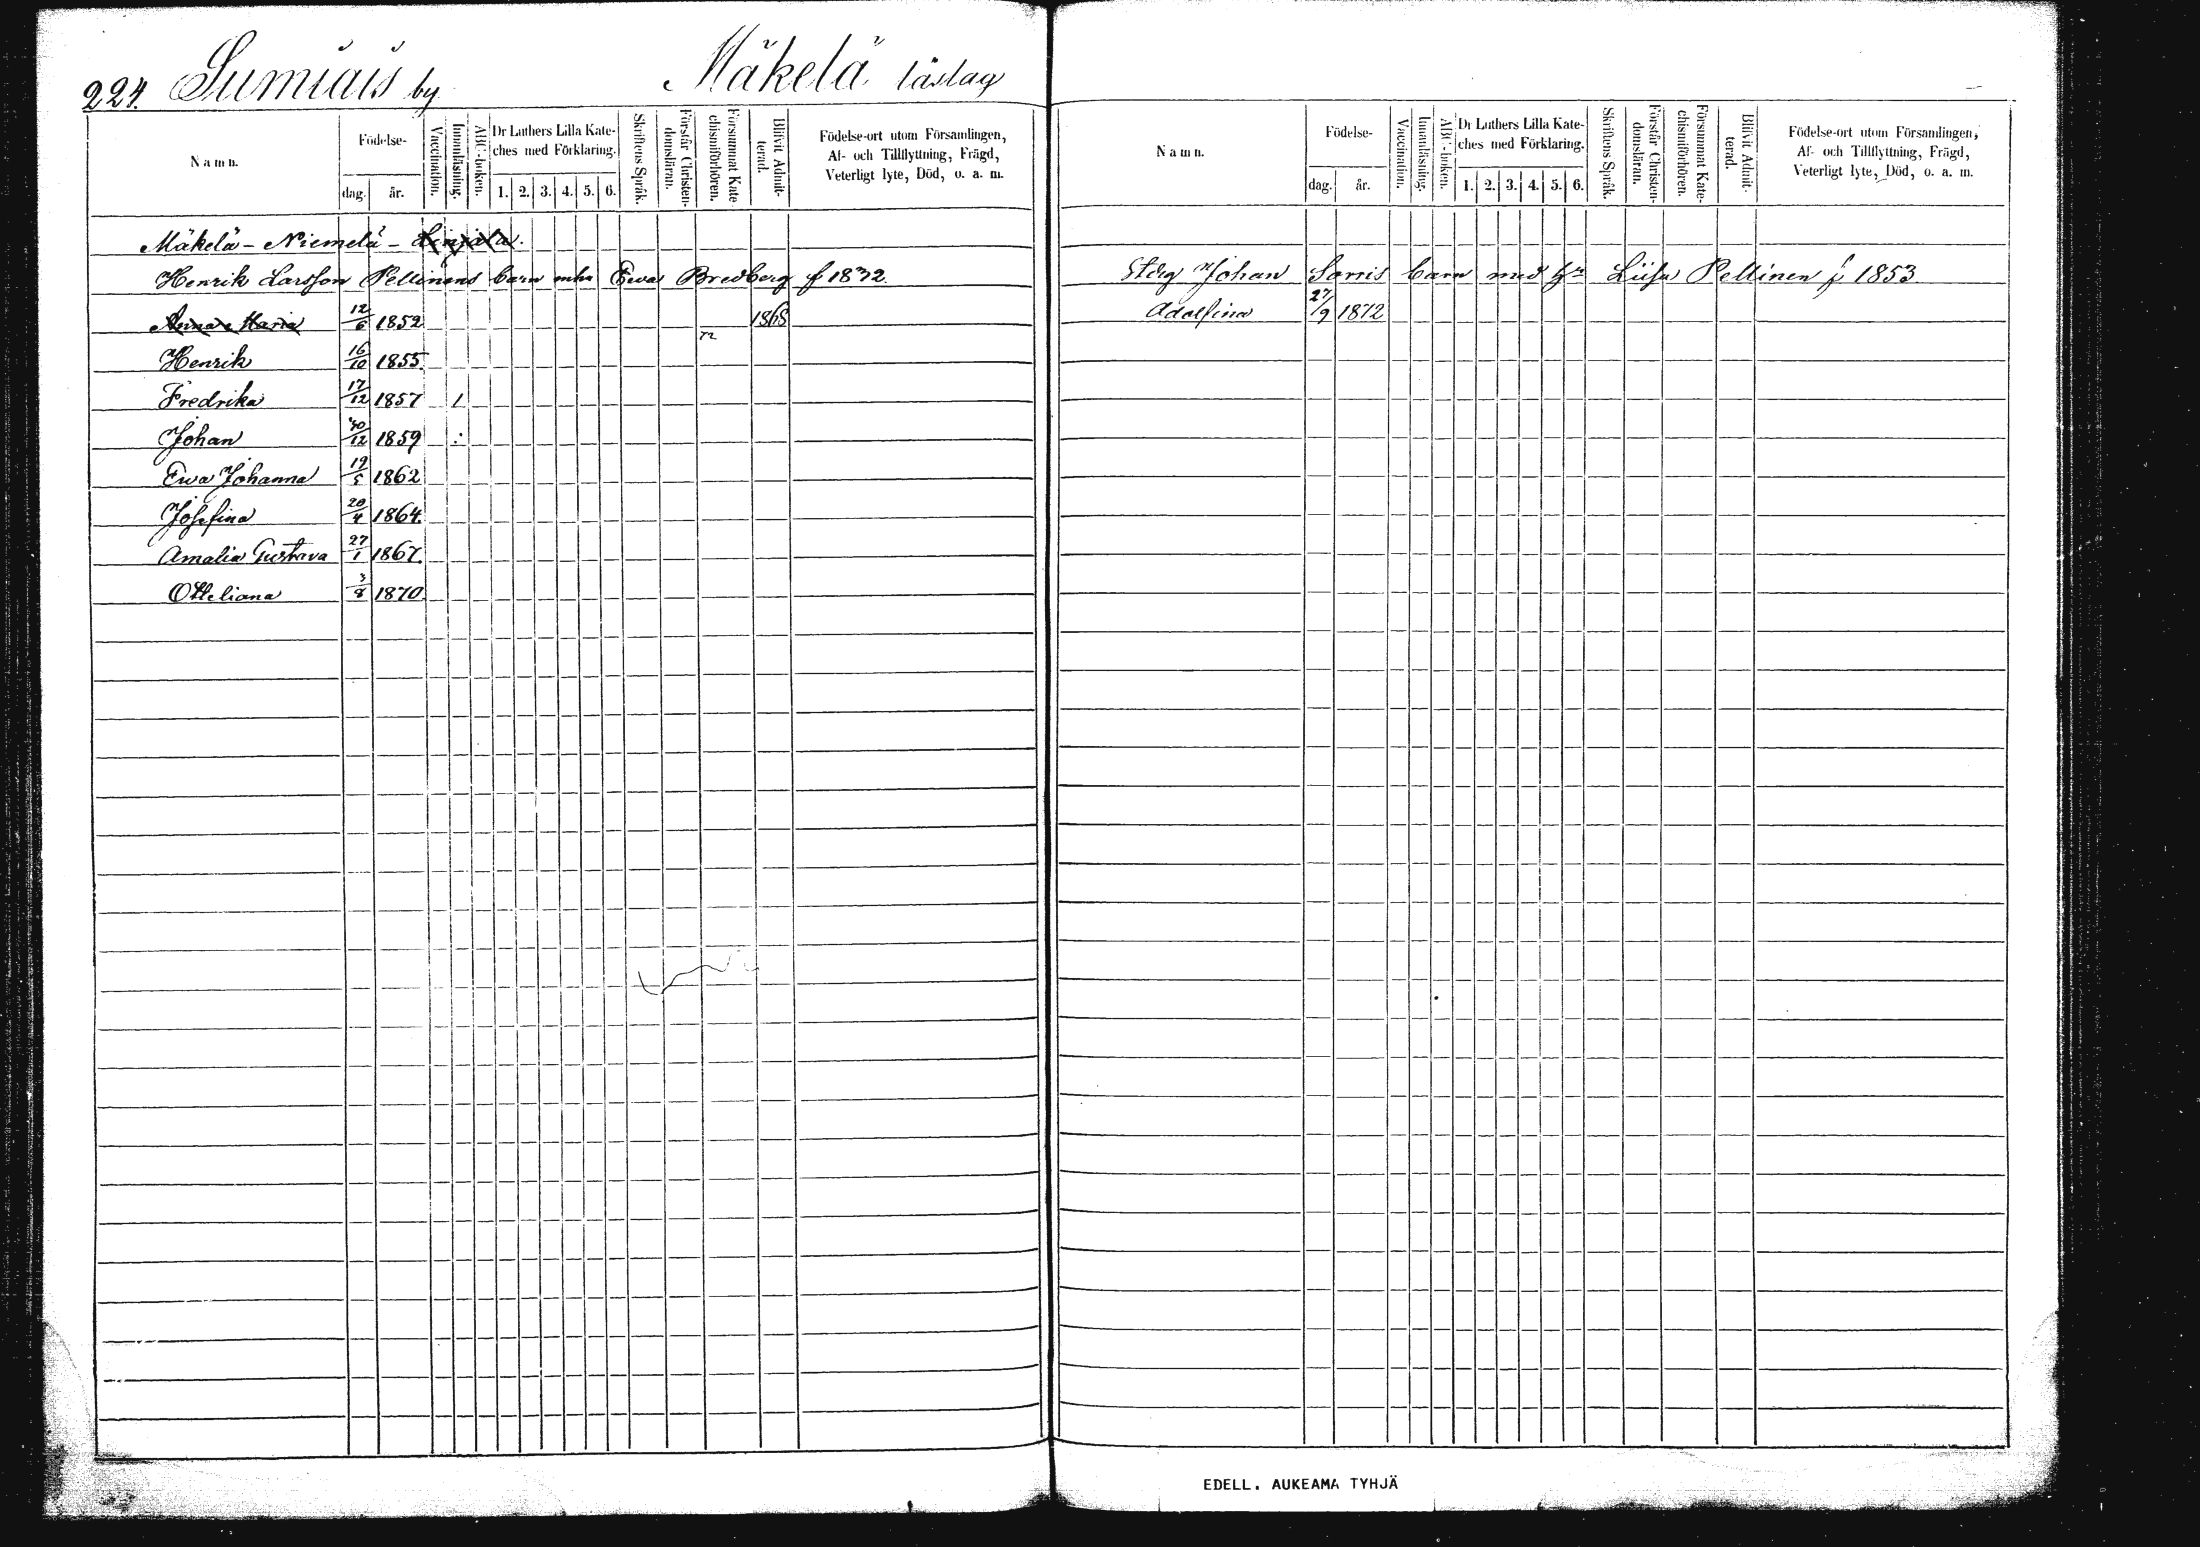 224. Sumiais by Mäkelä läslag
Namn.
Födelse-
dag. år.
Vaccination.
Innanläsning.
ABC-boken.
Dr Luthers Lilla Kate-
ches med Förklaring.
1. 2. 3. 4. 5. 6.
Skriftens Språk.
Förstår Christen-
domsläran.
Försummat Kate-
chismiförhören.
Blifvit Admit-
terad.
Födelse-ort utom Församlingen,
Af- och Tillflyttning, Frägd,
Veterligt lyte, Död, o. a. m.
Mäkelä - Niemelä -
Henrik Larsson Pellinens barn mha Ewa Bredberg f 1832.
Anna Maria 12/6 1852 1868
n
Henrik 16/10 1855.
Fredrika 17/12 1857 1
Johan 30/12 1859
Ewa Johanna 19/5 1862
Josefina 20/4 1864.
Amalia Gustava 27/1 1867.
Otteliana 3/8 1870.
Namn.
Födelse-
dag. år.
Vaccination.
Innanläsning.
ABC-boken.
Dr Luthers Lilla Kate-
ches med Förklaring.
1. 2. 3. 4. 5. 6.
Skriftens Språk.
Förstår Christen-
domsläran.
Försummat Kate-
chismiförhören.
Blifvit Admit-
terad.
Födelse-ort utom Församlingen,
Af- och Tillflyttning, Frägd,
Veterligt lyte, Död, o. a. m.
Johan Sorris barn med Liisa Pellinen f 1853
Adolfina 27/9 1872
EDELL. AUKEAMA TYHJÄ